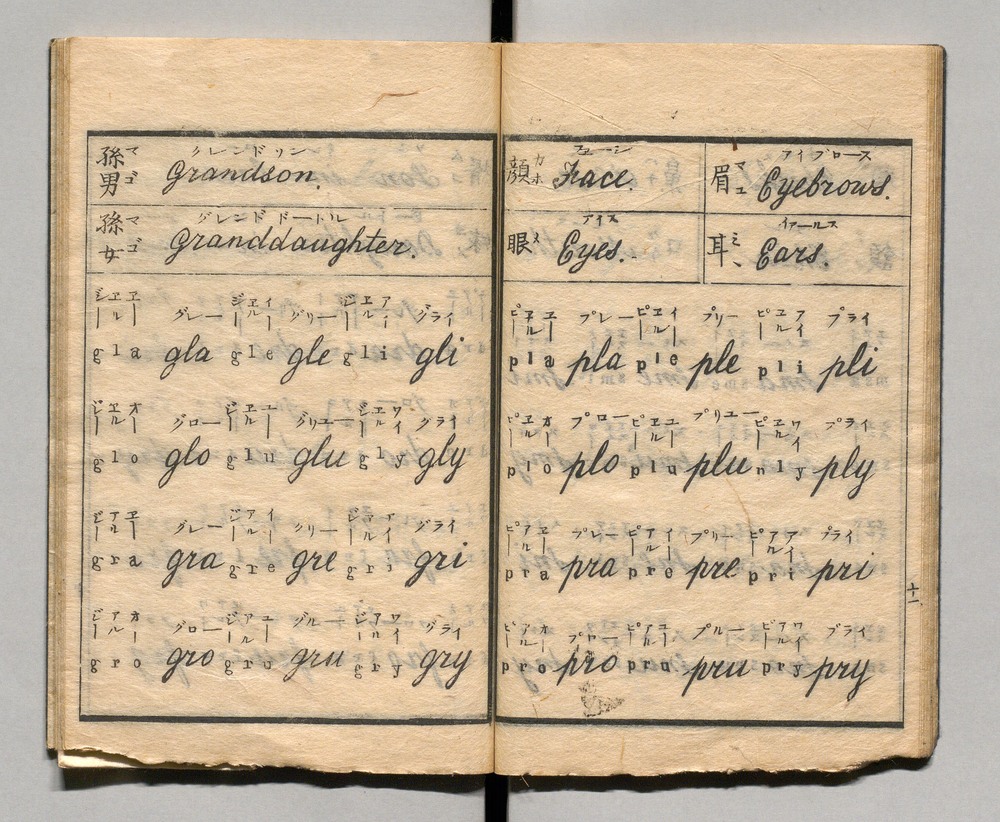 孫男 マゴ クレンドソン Grandson.
孫女 マゴ グレンドドートル Granddaughter.
ジーエルエー グレー ジーエルイー グリー ジーエルアイ グライ
gla gla gle gle gli gli
ジーエルオー グロー ジーエルユー グリユー ジーエルワイ グライ
glo glo glu glu gly gly
ジーアルエー グレー ジーアルイー クリー ジーアルアイ グライ
gra gra gre gre gri gri
ジーアルオー グロー ジーアルユー グルー ジーアルワイ グライ
gro gro gru gru gry gry
顔 カホ フェーシ Face
眉 マユ アイブロース Eyebrows.
眼 メ アイス Eyes.
耳 ミヽ イヤールス Ears.
ピーエルエー プレー ピーエルイー プリー ピーエルアイ プライ
pla pla ple ple pli pli
ピーエルオー プロー ピーエルユー プリユー ピーエルワイ プライ
plo plo plu plu nly ply
ピーアルエー プレー ピーアルイー プリー ピーアルアイ プライ
pra pra pre pre pri pri
十一
ピーアルオー プロー ピーアルユー プルー ピーアルワイ プライ
pro pro pru pru pry pry